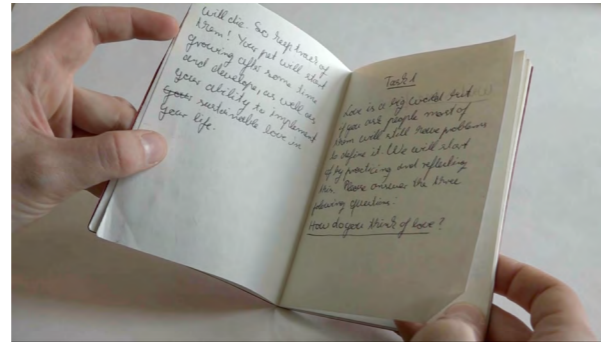 will die. So keep track of
them! Your pet will start
growing after some time
and develope, as well as
your ability to implement
your sustainable love in
your life.
Task 1
Love is a big world but
if you ask people most of
them will still have problems
to define it. We will start
of by practicing and reflecting
this. Please answer the three
following question:
How do you think of love?